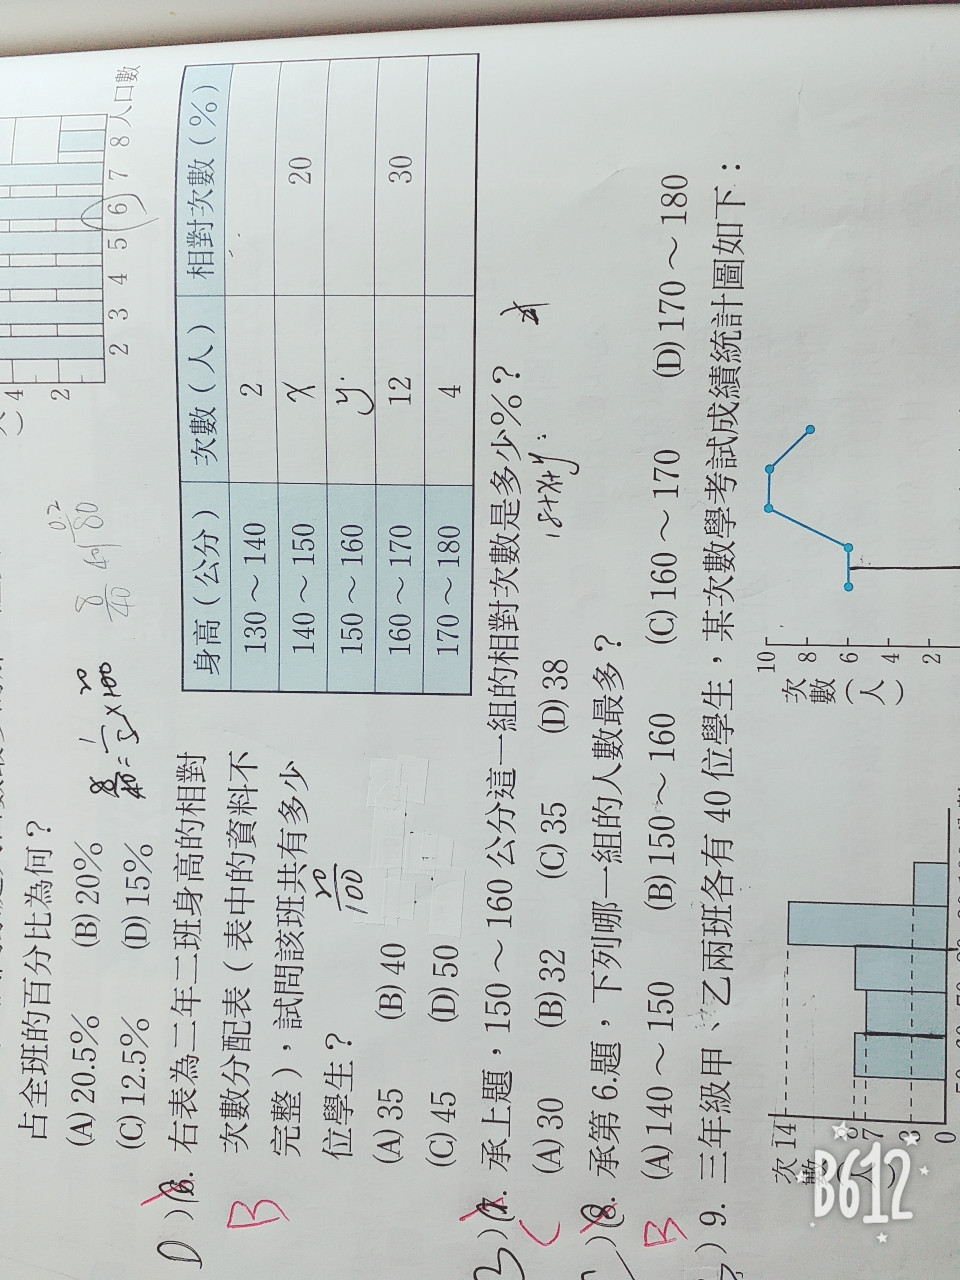 4
2
2 3 4 5 6 7 8 人口數
占全班的百分比為何？
(A) 20.5% (B) 20%
(C) 12.5% (D) 15%
D
B
)6. 右表為二年二班身高的相對
次數分配表（表中的資料不
完整），試問該班共有多少
位學生？
(A) 35 (B) 40
(C) 45 (D) 50
20
100
身高（公分） 次數（人） 相對次數（%）
130～140 2
140～150 x 20
150～160 y
160～170 12 30
170～180 4
)7. 承上題，150～160 公分這一組的相對次數是多少%？
C
(A) 30 (B) 32 (C) 35 (D) 38
18+x+y
)8. 承第 6.題，下列哪一組的人數最多？
B
(A) 140～150 (B) 150～160 (C) 160～170 (D) 170～180
) 9. 三年級甲、乙兩班各有 40 位學生，某次數學考試成績統計圖如下：
次數（人）
14
7
3
0
次數（人）
10
8
6
4
2
B612